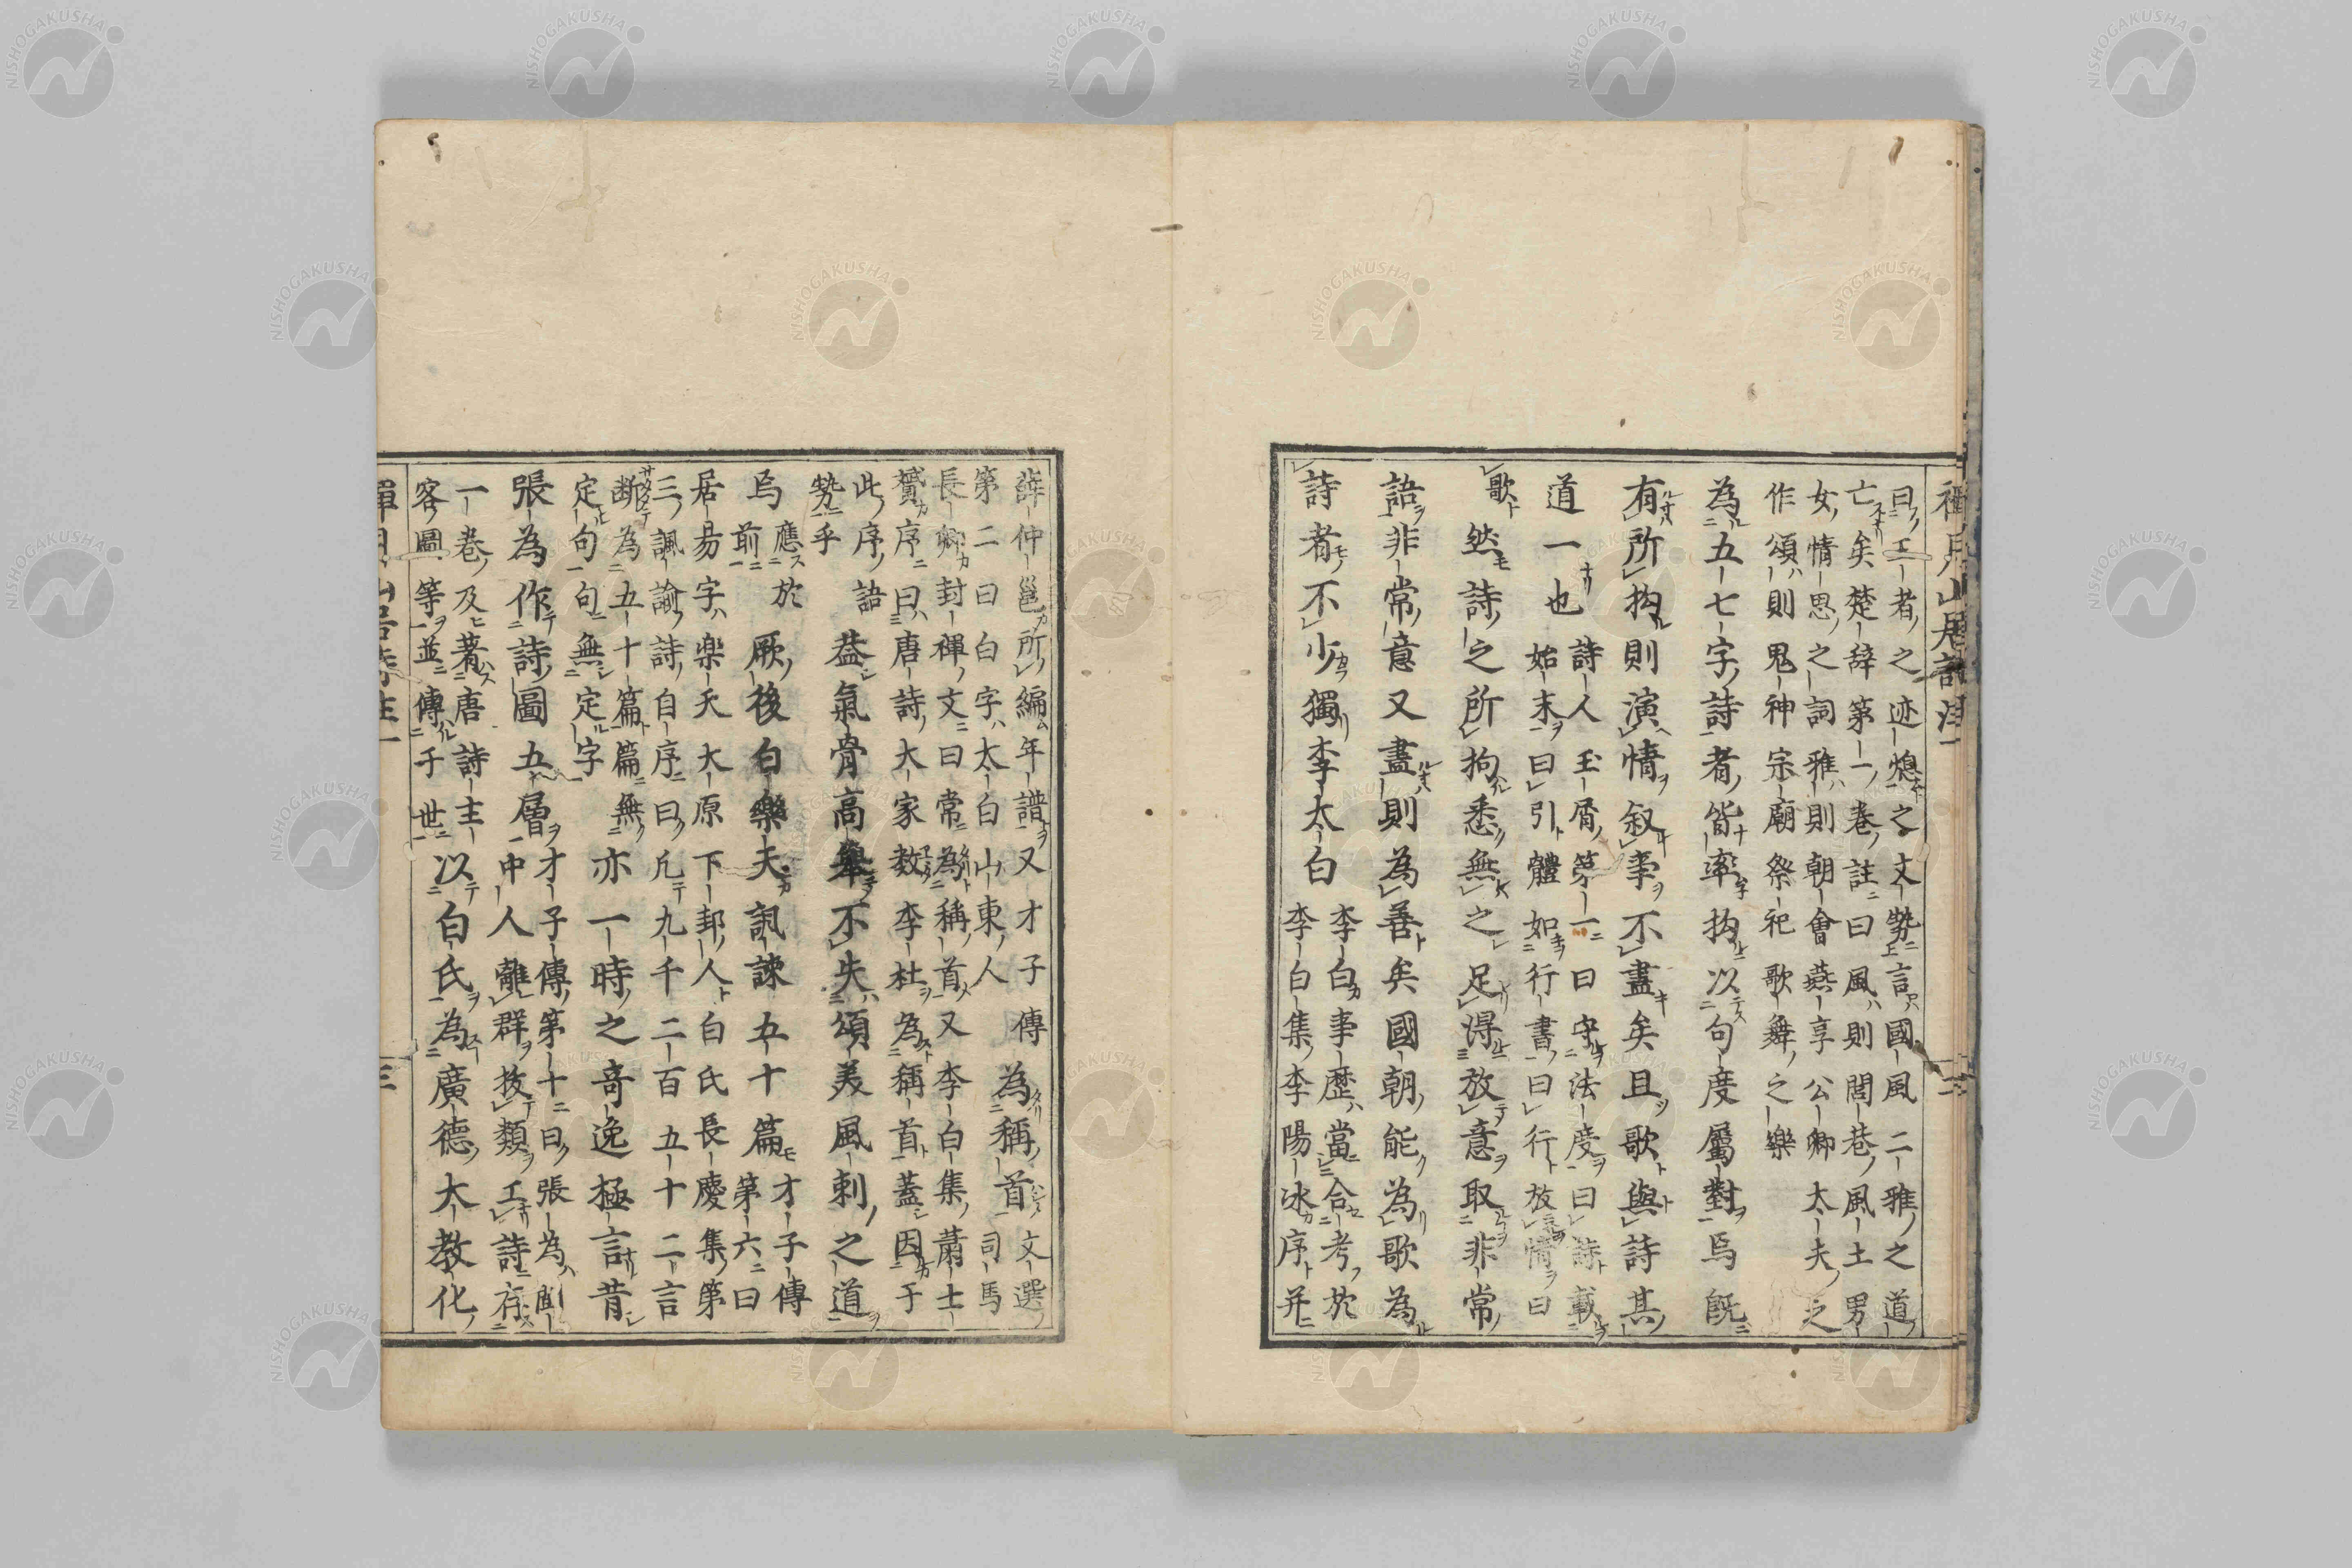 禪月山居詩註一
曰工者之迹熄之文勢言國風二雅之道
亡矣楚辞第一卷註曰風則閭巷風土男
女情思之詞雅則朝會燕享公卿大夫之
作頌則鬼神宗廟祭祀歌舞之樂
為五七字詩者皆率拘以句度屬對烏既
有所拘則演情叙事不盡矣且歌與詩其
道一也
詩人玉屑第一曰守法度曰詩載
始末曰引體如行書曰行放情曰
歌
然詩之所拘悉無之足得放意取非常
語非常意又盡則為善矣國朝能為歌為
詩者不少獨李太白
李白事歷當合考於
李白集李陽冰序并
薛仲邕所編年譜又才子傳
第二曰白字太白山東人
為稱首
文選
司馬
長卿封禪文曰常為稱首又李白集蕭士
贇序曰唐詩大家数李杜為稱首蓋因于
此序語
勢乎
葢氣骨高舉不失頌美風刺之道
烏
應於
前
厥後白樂天諷諫五十篇
才子傳
第六曰
居易字楽天大原下邽人白氏長慶集第
三諷諭詩自序曰凡九千二百五十二言
断為五十篇篇無
定句句無定字
亦一時之奇逸極言昔
張為作詩圖五層
才子傳第十曰張為閩
中人離群抜類工詩存
一巻及著唐詩主
客圖等並傳于世
以白氏為廣德大教化
三